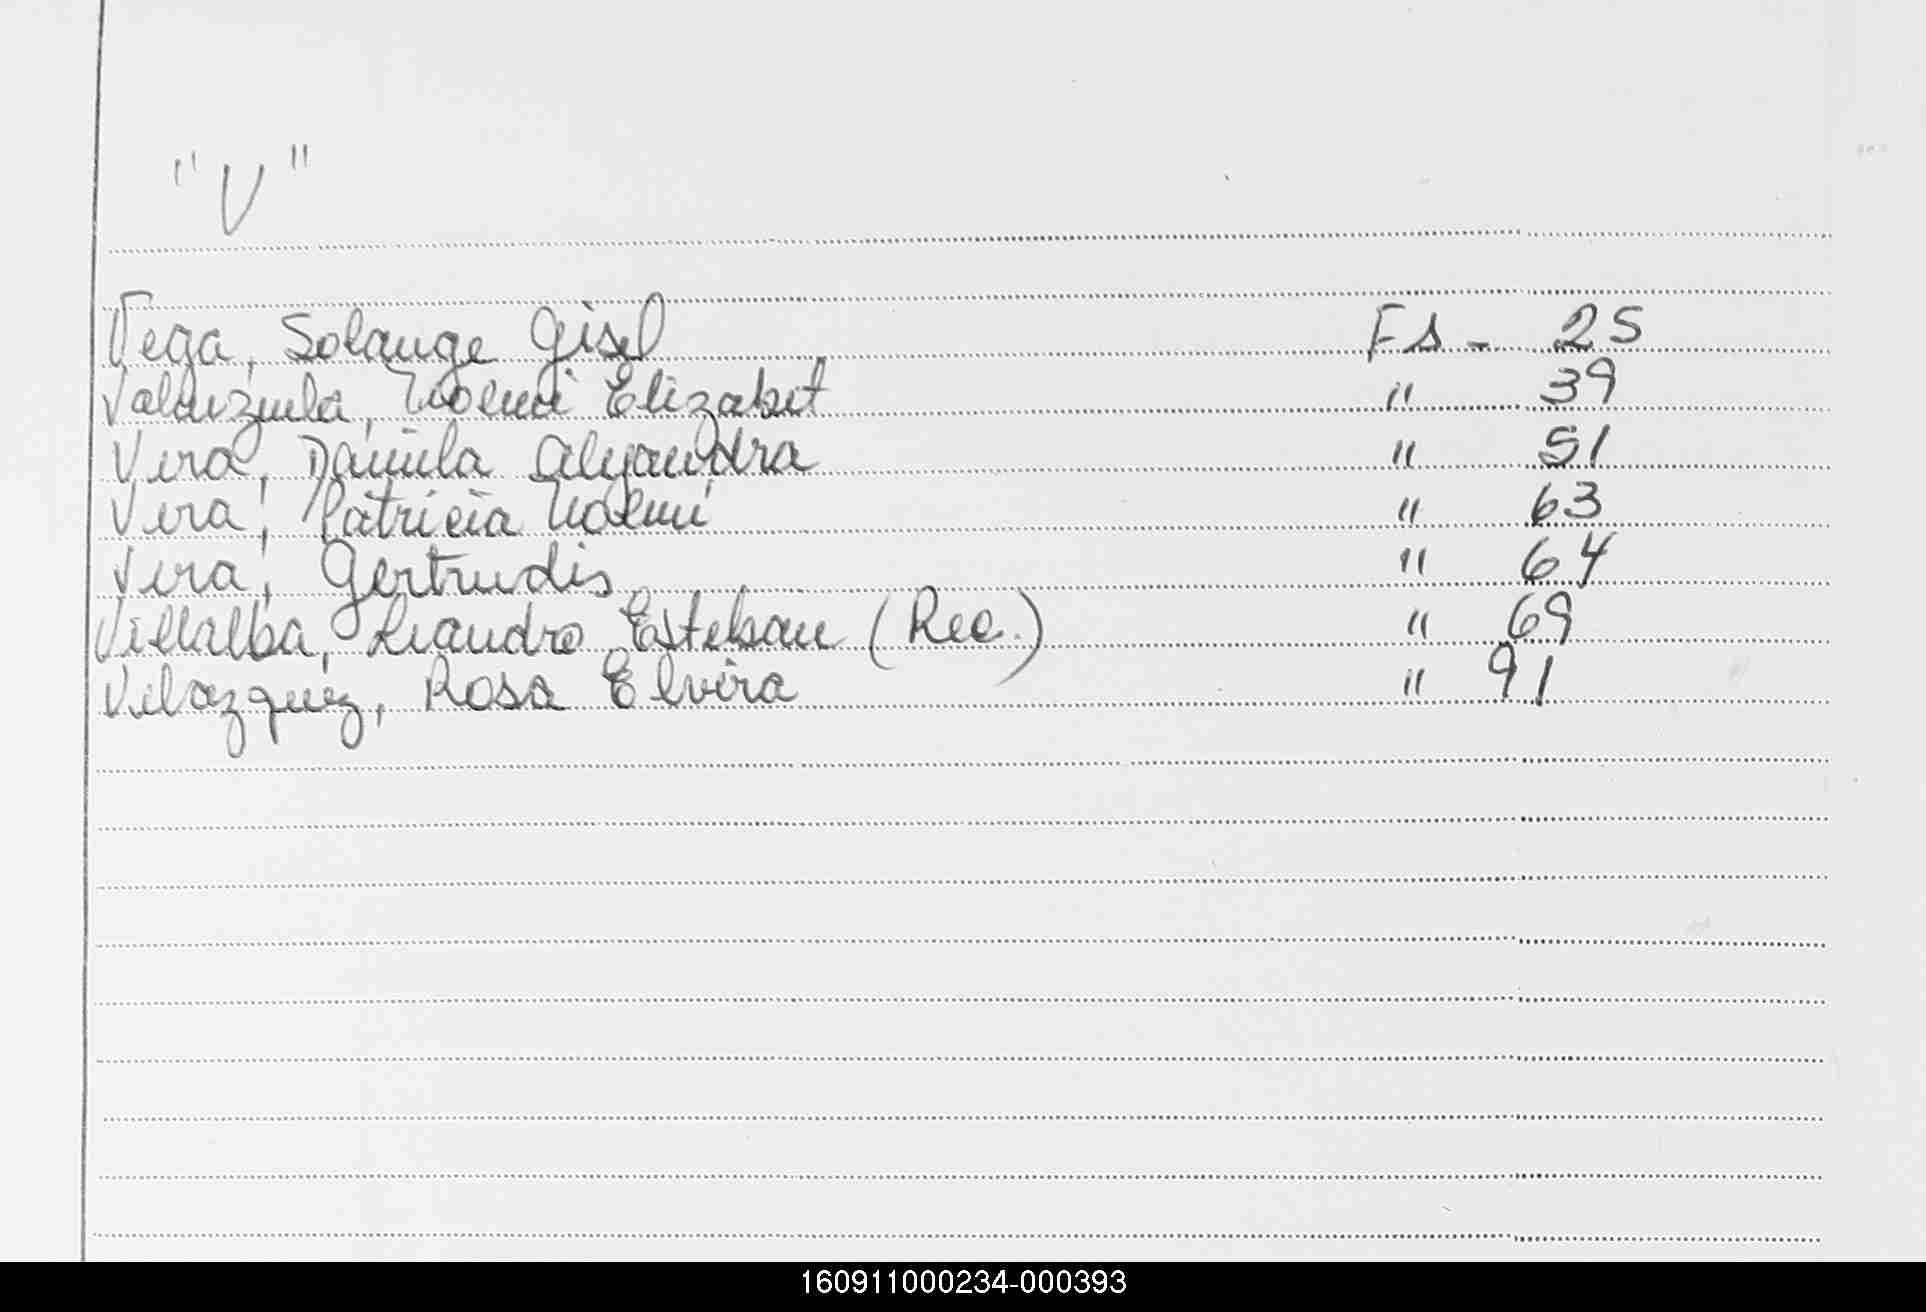 "V"
Vega, Solange Gisel Fs - 25
Valenzuela, Noemi Elizabet " 39
Vera, Daniela Alejandra " 51
Vera, Patricia Noemi " 63
Vera, Gertrudis " 64
Villalba, Leandro Esteban (Rec.) " 69
Velazquez, Rosa Elvira " 91
160911000234-000393